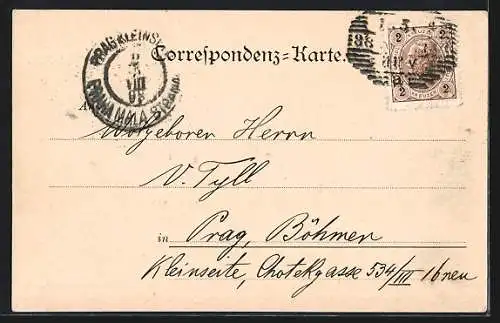 Correspondenz-Karte.
PRAG KLEINS
VIII
98
PRAHA MALÁ STRANA
2 2
2 2
A
Wolgeboren Herrn
V. Tyll
in Prag, Böhmen
Kleinseite, Chotekgasse 534/III 16 neu